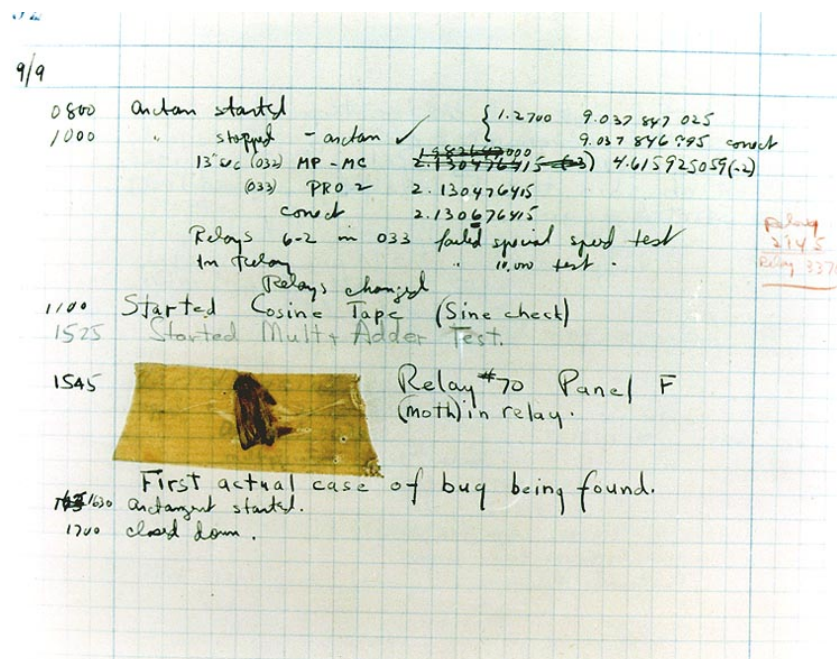 9/9
0800 arctan started { 1.2700 9.037 847 025
1000 " stopped - arctan ✓ 9.037 846 995 correct
13"uc (032) MP-MC 2.130476415 (-3) 4.615925059(-2)
(033) PRO 2 2.130476415
correct 2.130676415
Relays 6-2 in 033 failed special speed test
In Relay " 10,000 test.
Relays changed
Relay
2145
Relay 337
1100 Started Cosine Tape (Sine check)
1525 Started Mult + Adder Test.
1545 Relay #70 Panel F
(moth) in relay.
First actual case of bug being found.
1630 arctangent started.
1700 closed down.